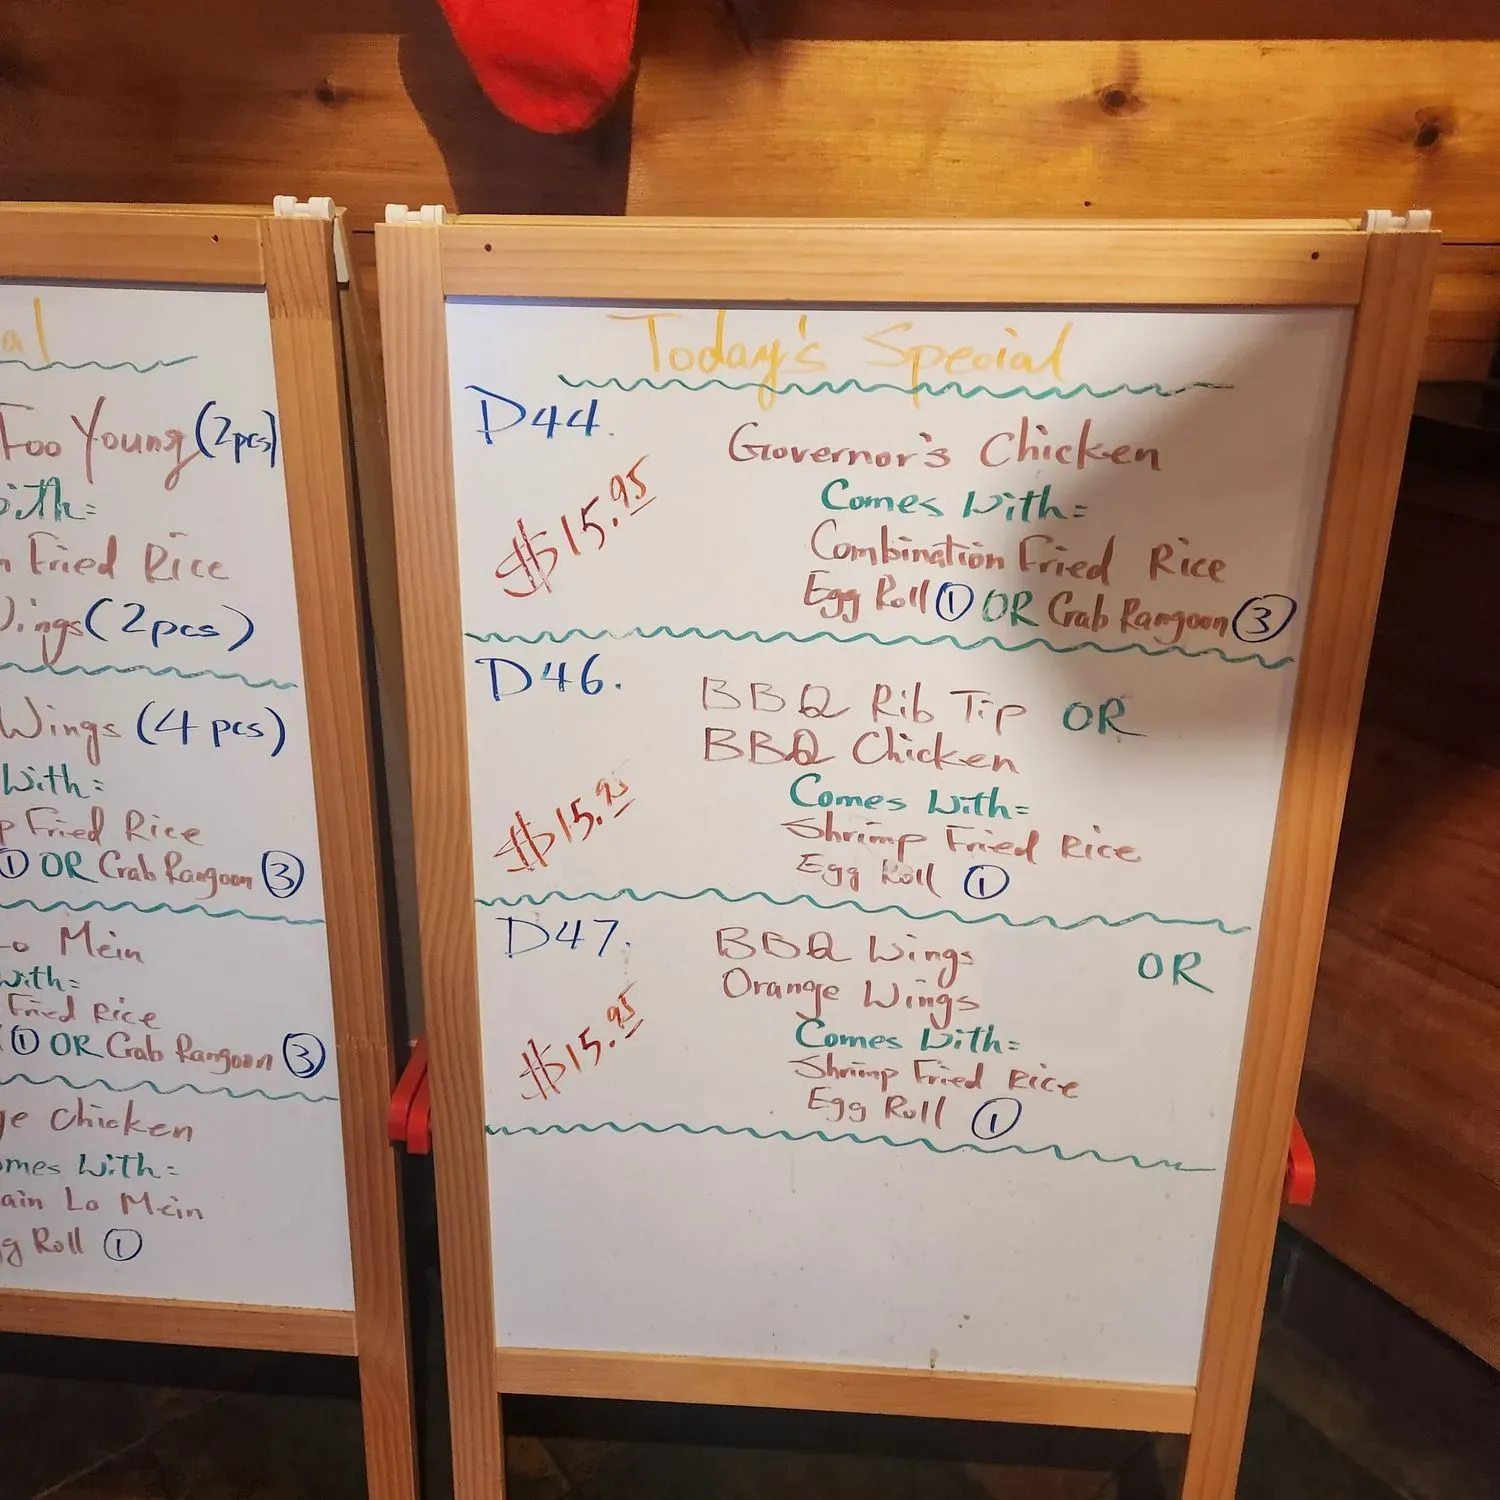 al
Foo Young (2pcs)
with:
Fried Rice
Wings (2pcs)
Wings (4 pcs)
With:
Fried Rice
① OR Crab Rangoon ③
Lo Mein
with:
Fried Rice
① OR Crab Rangoon ③
Chicken
omes With:
ain Lo Mein
gg Roll ①
Today's Special
D44.
Governor's Chicken
$15.95
Comes With:
Combination Fried Rice
Egg Roll ① OR Crab Rangoon ③
D46.
BBQ Rib Tip OR
BBQ Chicken
$15.95
Comes With:
Shrimp Fried Rice
Egg Roll ①
D47.
BBQ Wings OR
Orange Wings
$15.95
Comes With:
Shrimp Fried Rice
Egg Roll ①